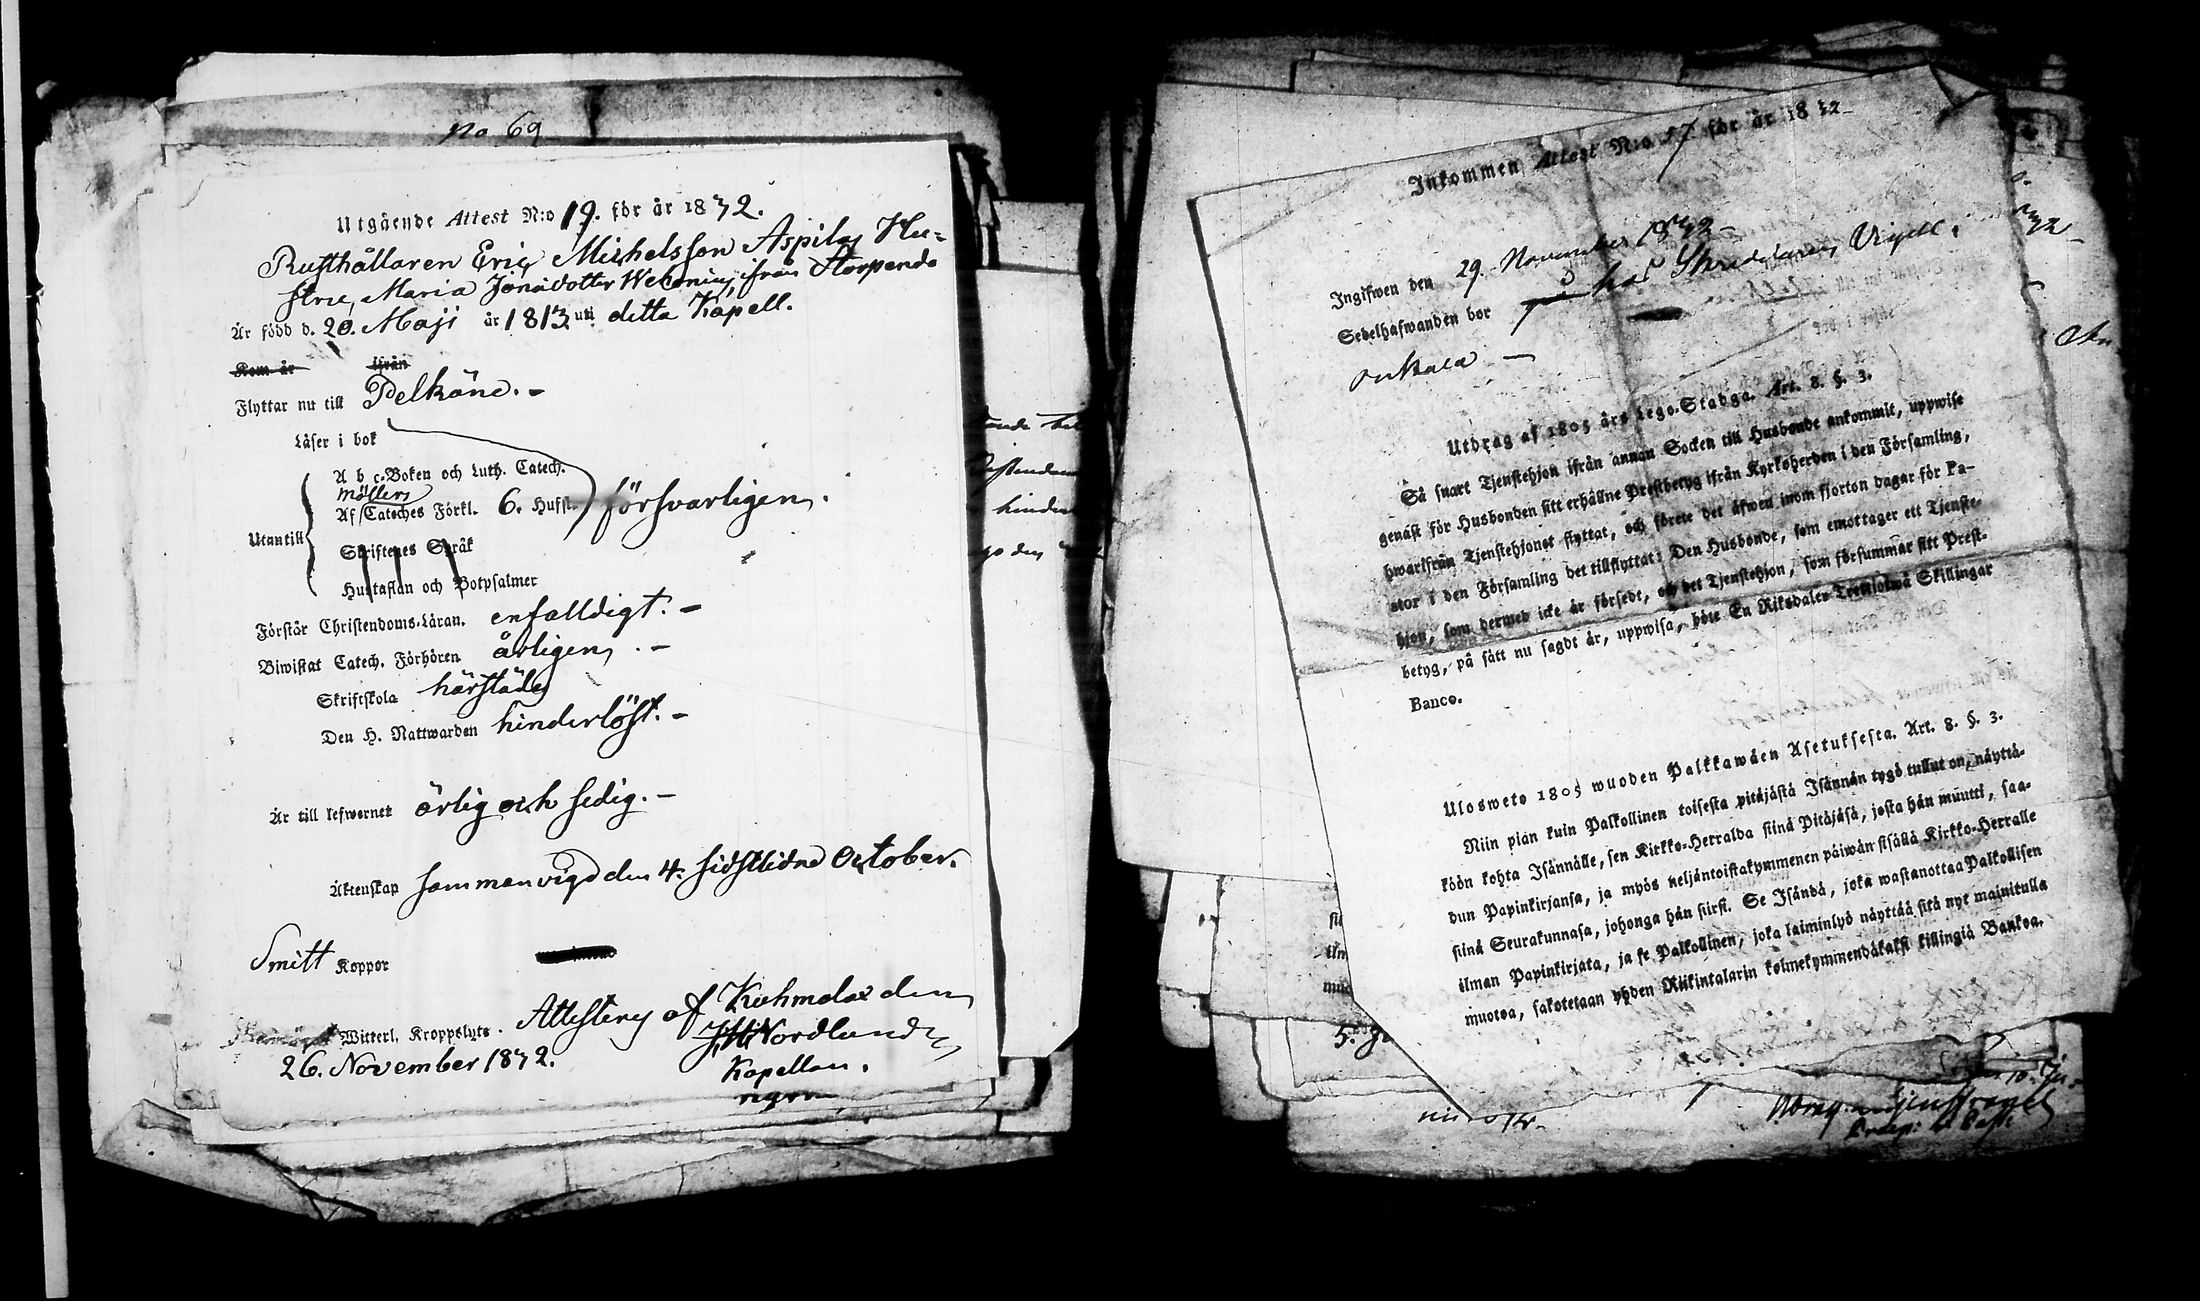 no 69
Utgående Attest N:o 19. för år 1832.
Rusthållaren Eric Michelsson Aspilas Hu-
stru, Maria Jönsdotter från
Är född d. 20. Maji år 1813 uti detta Kapell.
Kom år ifrån
Flyttar nu till Pelkäne. -
Läser i bok
A b c-Boken och Luth. Catech.
Möllers
Utantill Af Cateches Förkl. 6. Hufst. försvarligen.
Skriftenes Språk
Hustaflan och Botpsalmer
Förstår Christendoms-Läran. enfalldigt. -
Biwistat Catech. Förhören årligen. -
Skriftskola härstädes
Den H. Nattwarden hinderlöst. -
Är till lefwernet ärlig och sedig. -
Äktenskap sammanvigd den 4. sidstledne October.
Smitt Koppor
Witterl. Kroppslyte. Attesterar af Kuhmalax den
26. November 1832. Nordlund
Kapellan.
Inkommen Attest N:o 57 för år 1832
Ingifwen den 29. November 1832
Sedelhafwanden bor hos Skräddaren
Utdrag af 1805 års Lego-Stadga. Art. 8. §. 3.
Så snart Tjenstehjon ifrån annan Socken till Husbonde ankommit, uppwise
genast för Husbonden sitt erhållne Prestbetyg ifrån Kyrkoherden i den Församling,
hwarifrån Tjenstehjonet flyttat, och förete det äfwen inom fjorton dagar för Pa-
stor i den Församling det tillflyttat: Den Husbonde, som emottager ett Tjenste-
hjon, som dermed icke är försedt, och det Tjenstehjon, som försummar sitt Prest-
betyg, på sätt nu sagdt är, uppwisa, böte En Riksdaler Trettiotwå Skillingar
Banco.
Ulosweto 1805 wuoden Palkkawäen Asetuksesta. Art. 8. §. 3.
Niin pian kuin Palkollinen toisesta pitäjästä Isännän tygö tullut on, näyttä-
köön kohta Isännälle, sen Kirkko-Herralda siinä Pitäjäsä, josta hän muutti, saa-
dun Papinkirjansa, ja myös neljäntoistakymmenen päiwän sisällä Kirkko-Herralle
siinä Seurakunnasa, johonga hän siirsi. Se Isändä, joka wastanottaa Palkollisen
ilman Papinkirjata, ja se Palkollinen, joka laiminlyö näyttää sitä nyt mainitulla
muotoa, sakotetaan yhden Riikintalarin kolmekymmendäkaksi killingiä Bankoa.